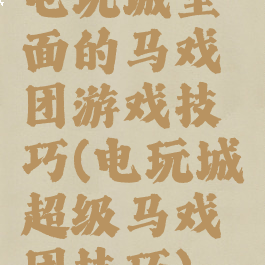 电玩城里
面的马戏
团游戏技
巧(电玩城
超级马戏
团技巧)